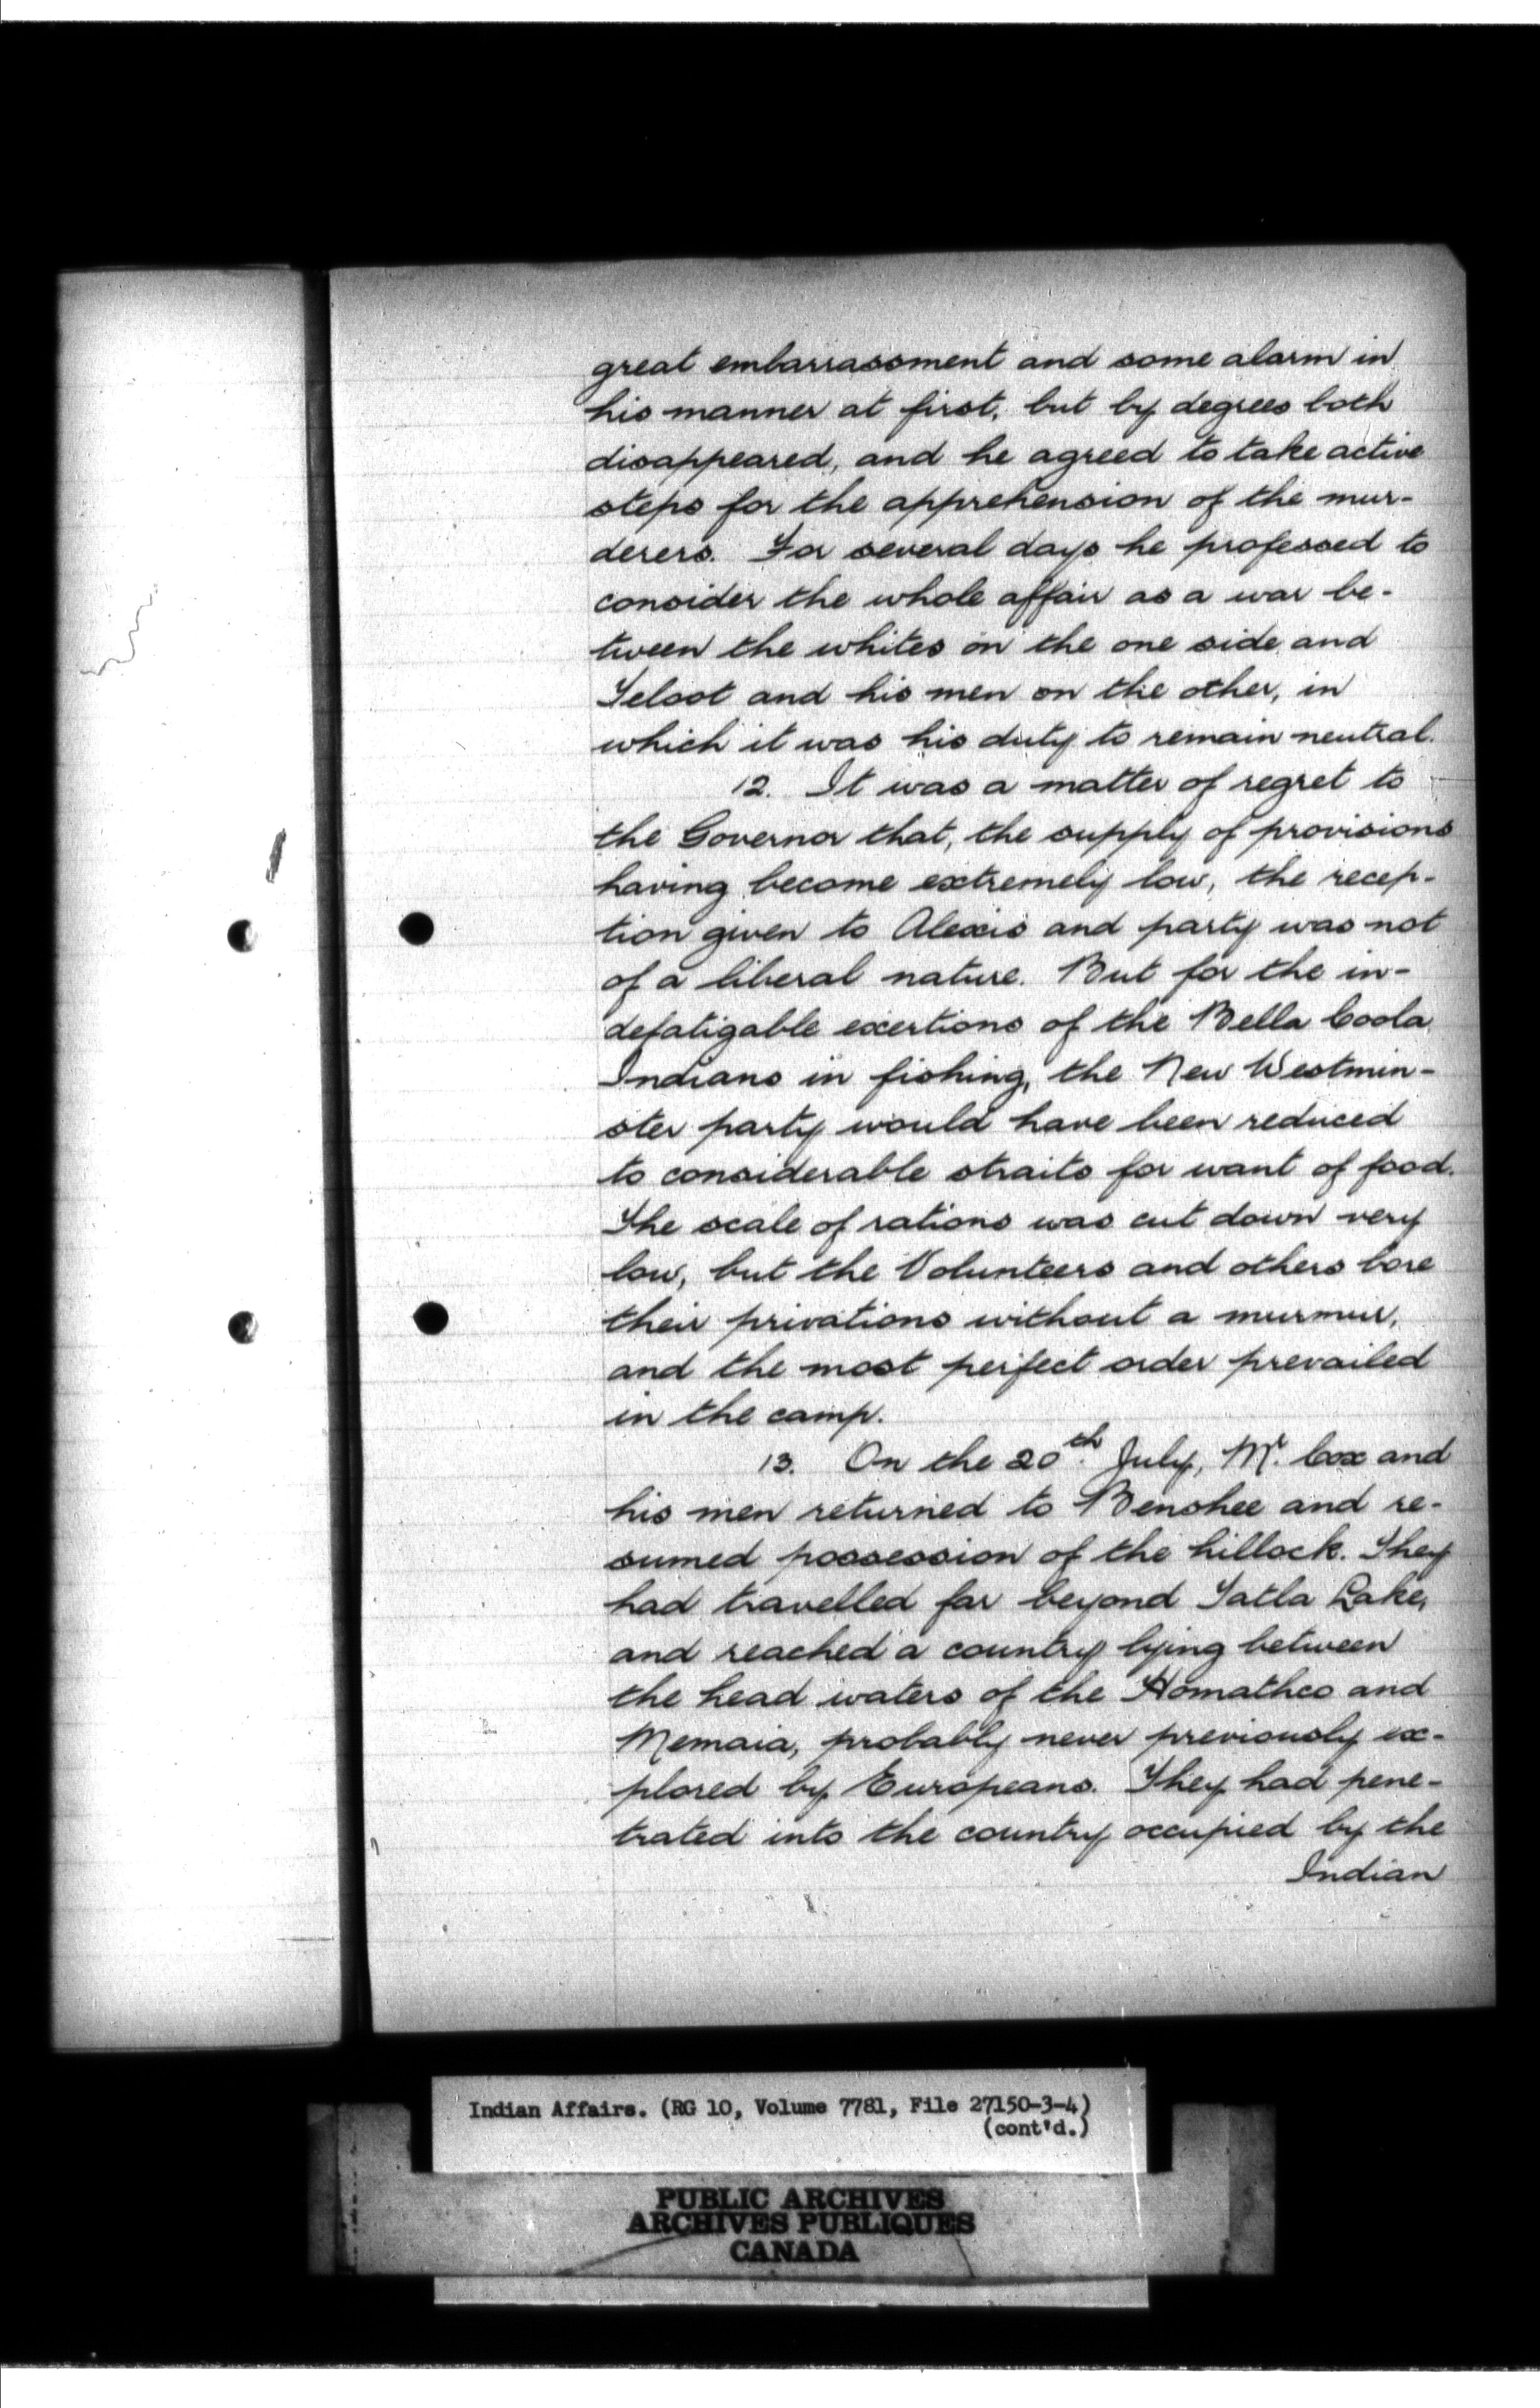 great embarrassment and some alarm in
his manner at first, but by degrees both
disappeared, and he agreed to take active
steps for the apprehension of the mur-
derers. For several days he professed to
consider the whole affair as a war be-
tween the whites on the one side and
Teloot and his men on the other, in
which it was his duty to remain neutral.
12. It was a matter of regret to
the Governor that, the supply of provisions
having become extremely low, the recep-
tion given to Alexis and party was not
of a liberal nature. But for the in-
defatigable exertions of the Bella Coola
Indians in fishing, the New Westmin-
ster party would have been reduced
to considerable straits for want of food.
The scale of rations was cut down very
low, but the Volunteers and others bore
their privations without a murmur,
and the most perfect order prevailed
in the camp.
13. On the 20th. July, Mr. Cox and
his men returned to Benshee and re-
sumed possession of the hillock. They
had travelled far beyond Tatla Lake,
and reached a country lying between
the head waters of the Homathco and
Memaia, probably never previously ex-
plored by Europeans. They had pene-
trated into the country occupied by the
Indian
Indian Affairs. (RG 10, Volume 7781, File 27150-3-4)
(cont'd.)
PUBLIC ARCHIVES
ARCHIVES PUBLIQUES
CANADA